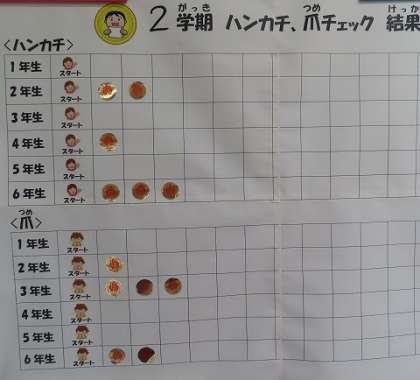 2 学期 ハンカチ、爪チェック 結果
がっき つめ けっか
<ハンカチ>
1年生 スタート
2年生 スタート
3年生 スタート
4年生 スタート
5年生 スタート
6年生 スタート
<爪>
つめ
1年生 スタート
2年生 スタート
3年生 スタート
4年生 スタート
5年生 スタート
6年生 スタート